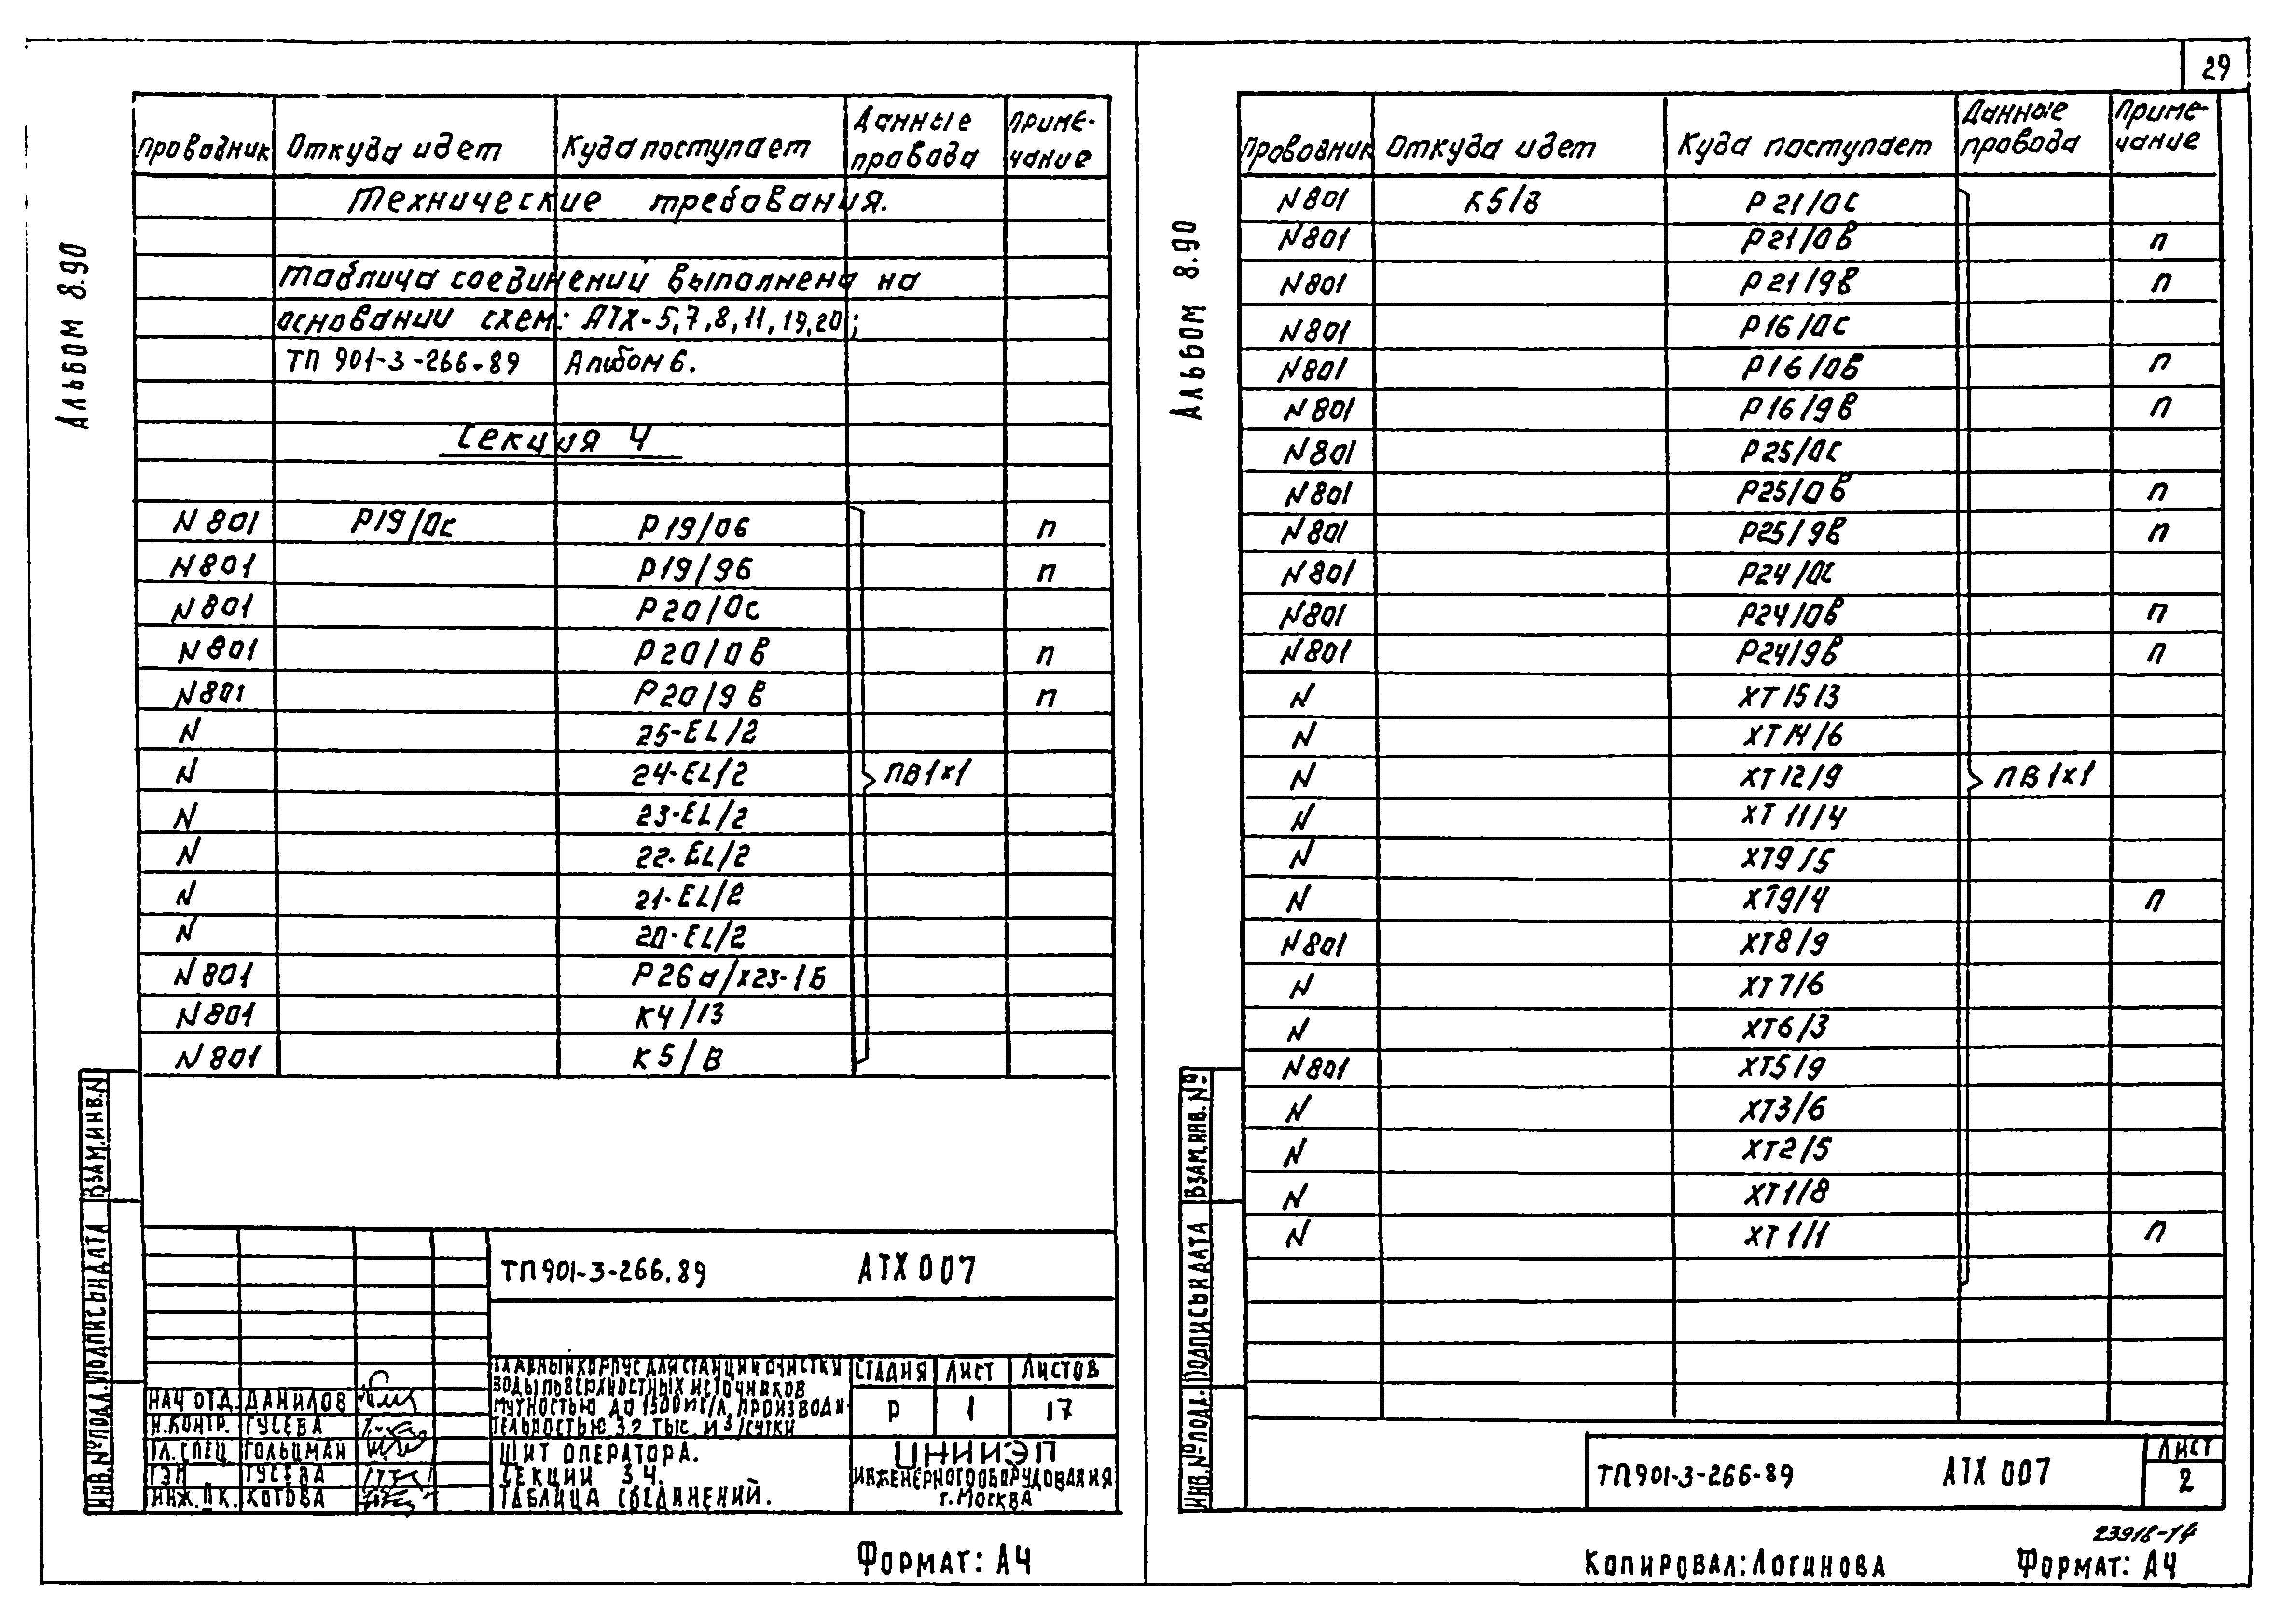 29
Альбом 8.90
Проводник Откуда идет Куда поступает Данные провода Примечание
Технические требования.
таблица соединений выполнена на
основании схем: АТХ-5,7,8,11,19,20;
ТП 901-3-266.89 Альбом 6.
Секция 4
N801 Р19/0с Р19/0б п
N801 Р19/9б п
N801 Р20/0с
N801 Р20/0в п
N801 Р20/9в п
N 25-EL/2
N 24-EL/2 ПВ1х1
N 23-EL/2
N 22-EL/2
N 21-EL/2
N 20-EL/2
N801 Р26а/х23-1Б
N801 К4/13
N801 К5/В
ВЗАМ.ИНВ.N
ПОДПИСЬ И ДАТА
ИНВ.№ ПОДЛ.
ТП901-3-266.89 АТХ 007
ГЛАВНЫЙ КОРПУС ДЛЯ СТАНЦИИ ОЧИСТКИ
ВОДЫ ПОВЕРХНОСТНЫХ ИСТОЧНИКОВ
МУТНОСТЬЮ ДО 1500МГ/Л, ПРОИЗВОДИ-
ТЕЛЬНОСТЬЮ 3.2 ТЫС. М3/СУТКИ
СТАДИЯ ЛИСТ ЛИСТОВ
Р 1 17
НАЧ ОТД. ДАНИЛОВ
Н.КОНТР. ГУСЕВА
ГЛ.СПЕЦ ГОЛЬЦМАН
ГЭП ГУСЕВА
ИНЖ. ПК. КОТОВА
ЩИТ ОПЕРАТОРА.
СЕКЦИИ 3.4.
ТАБЛИЦА СОЕДИНЕНИЙ.
ЦНИИЭП
ИНЖЕНЕРНОГО ОБОРУДОВАНИЯ
г.МОСКВА
ФОРМАТ: А4
Альбом 8.90
Проводник Откуда идет Куда поступает Данные провода Примечание
N801 К5/В Р21/0с
N801 Р21/0в п
N801 Р21/9в п
N801 Р16/0с
N801 Р16/0в п
N801 Р16/9в п
N801 Р25/0с
N801 Р25/0в п
N801 Р25/9в п
N801 Р24/0с
N801 Р24/0в п
N801 Р24/9в п
N ХТ15/3
N ХТ14/6
N ХТ12/9 ПВ1х1
N ХТ11/4
N ХТ9/5
N ХТ9/4 п
N801 ХТ8/9
N ХТ7/6
N ХТ6/3
N801 ХТ5/9
N ХТ3/6
N ХТ2/5
N ХТ1/8
N ХТ1/1 п
ВЗАМ.ИНВ.№
ПОДПИСЬ И ДАТА
ИНВ.№ ПОДЛ.
ТП901-3-266-89 АТХ 007
ЛИСТ
2
23918-14
КОПИРОВАЛ: ЛОГИНОВА ФОРМАТ: А4